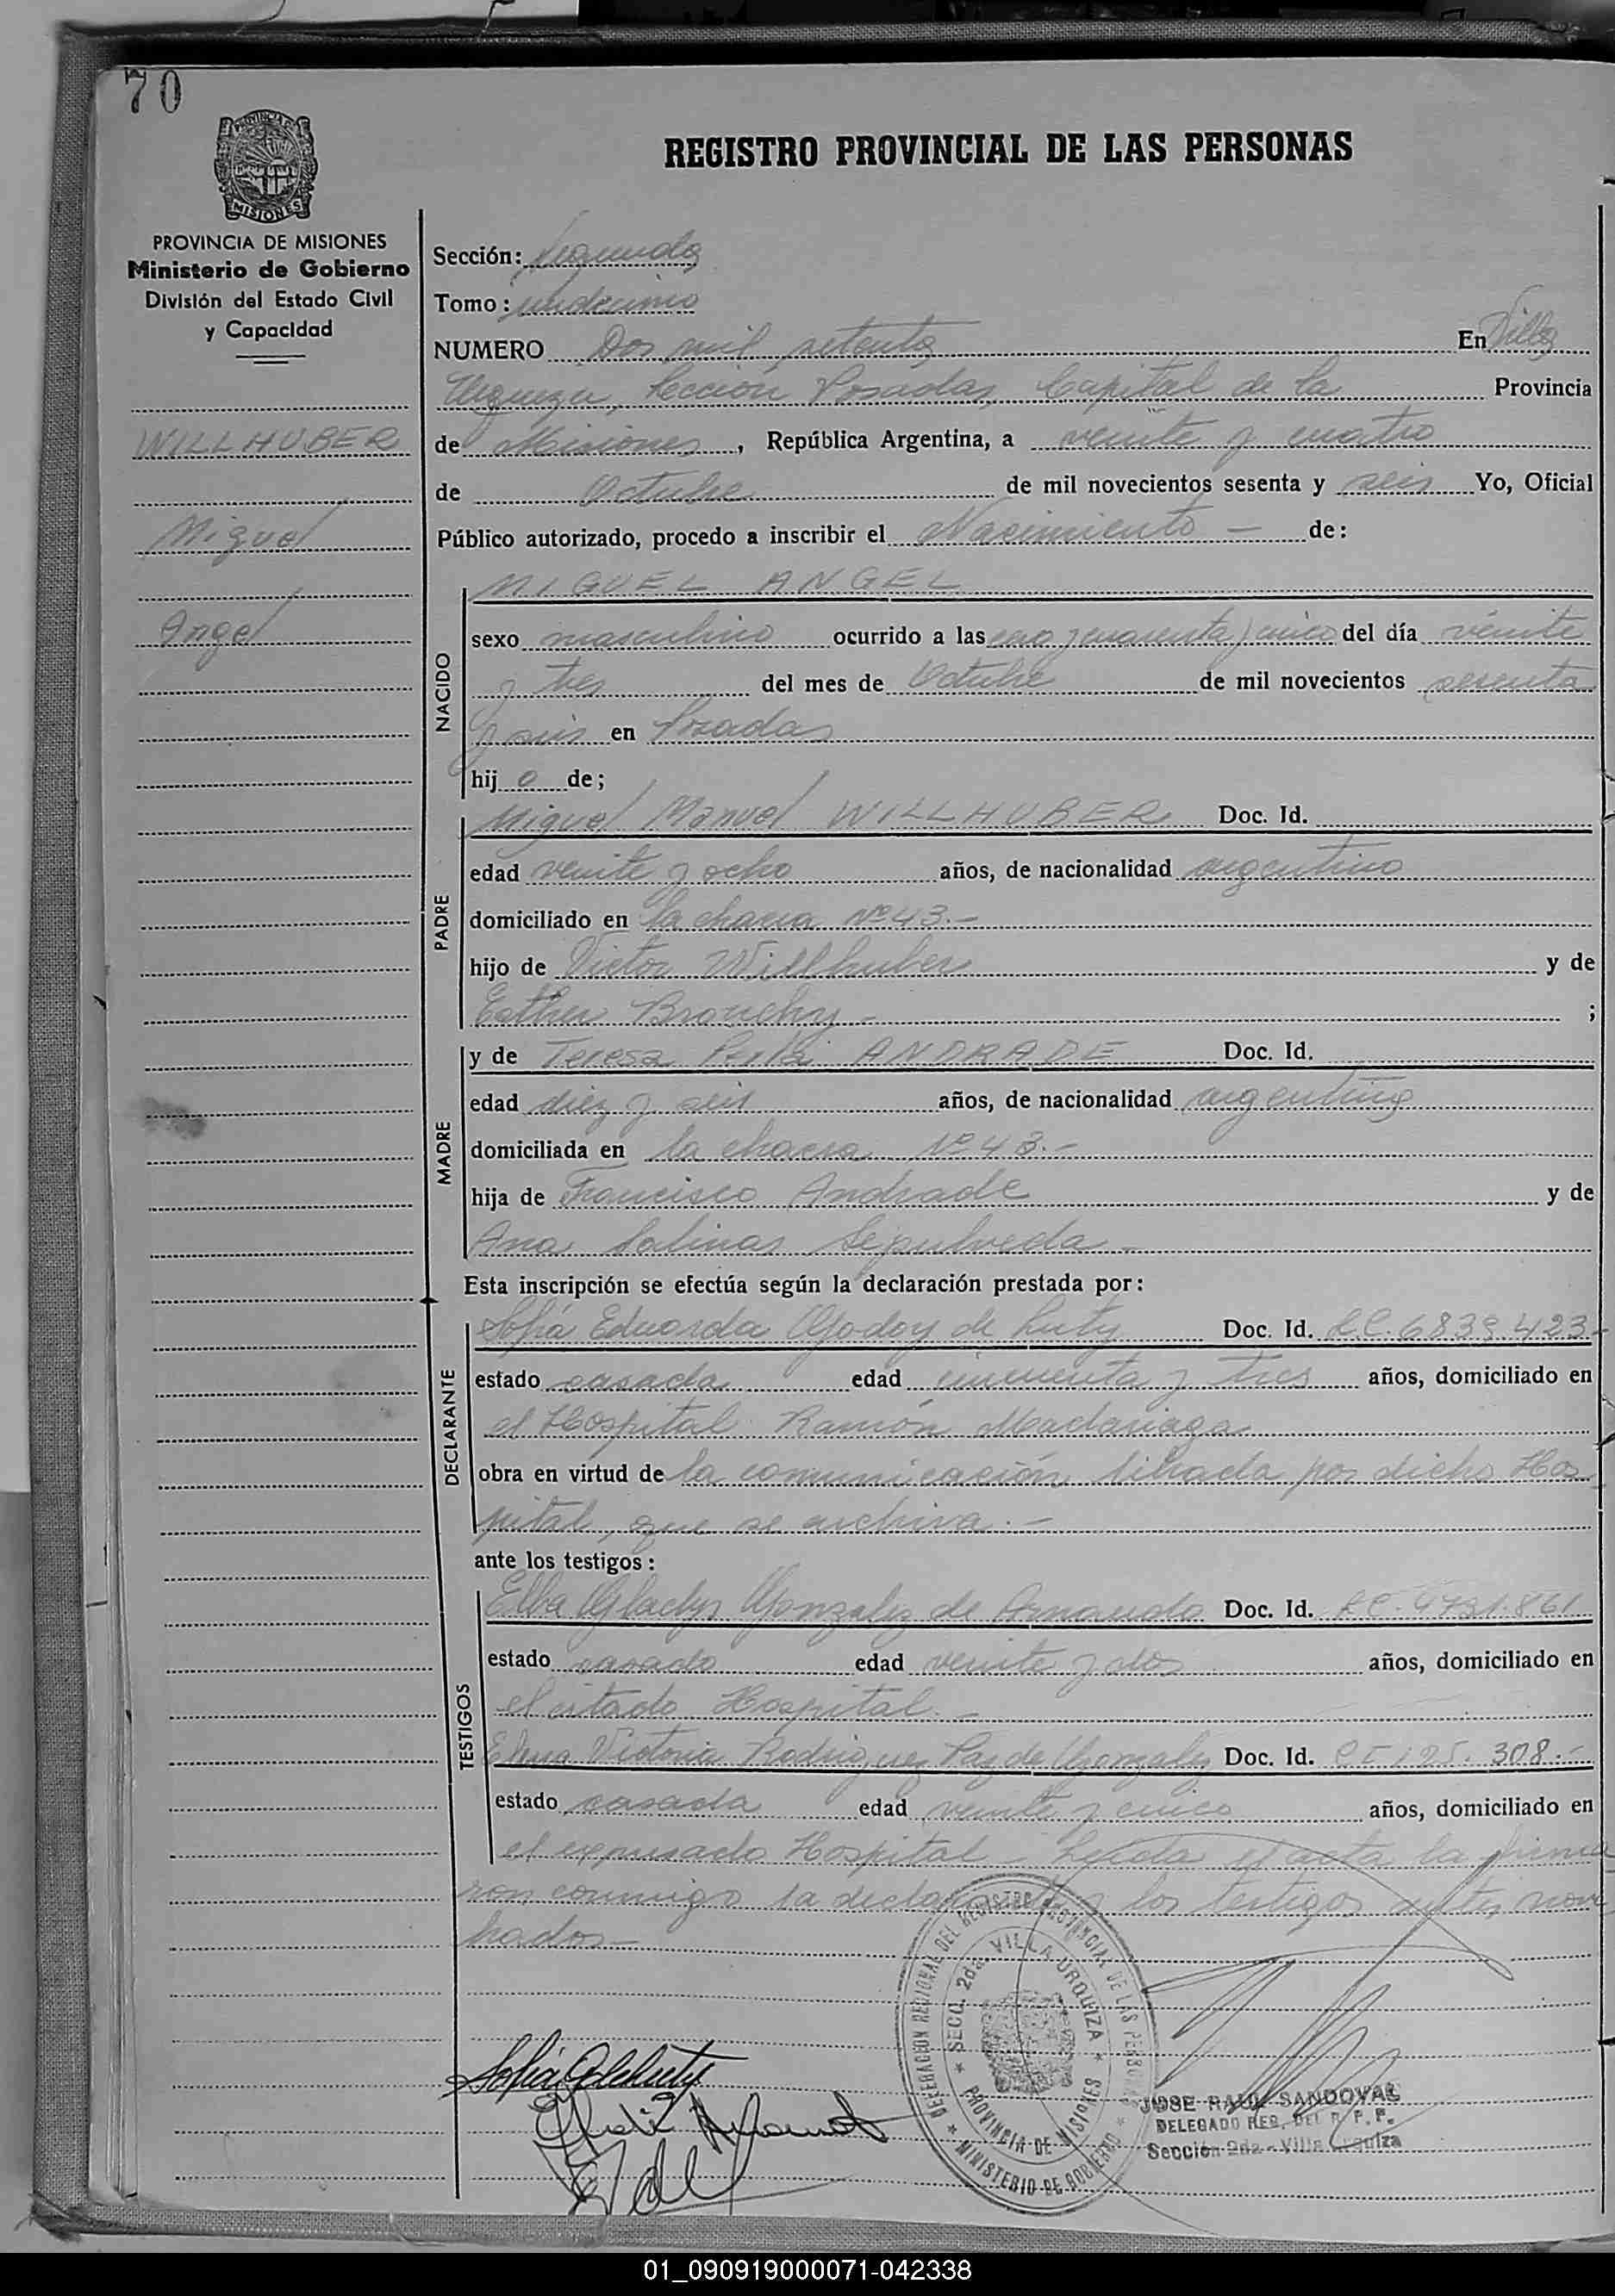 70
REGISTRO PROVINCIAL DE LAS PERSONAS
PROVINCIA DE MISIONES
Ministerio de Gobierno
División del Estado Civil
y Capacidad
WILLHUBER
Miguel
Angel
Sección: Segunda
Tomo: undecimo
NUMERO Dos mil setenta En Villa
Urquiza, Sección Posadas, Capital de la Provincia
de Misiones, República Argentina, a veinte y cuatro
de Octubre de mil novecientos sesenta y seis Yo, Oficial
Público autorizado, procedo a inscribir el Nacimiento - de:
NACIDO
MIGUEL ANGEL
sexo masculino ocurrido a las cero y cuarenta y cinco del día veinte
y tres del mes de Octubre de mil novecientos sesenta
y seis en Posadas
hijo de;
PADRE
Miguel Manuel WILLHUBER Doc. Id.
edad veinte y ocho años, de nacionalidad argentino
domiciliado en la chacra Nº 43.-
hijo de Victor Willhuber y de
Esther Brouchy - ;
MADRE
y de Teresa Perla ANDRADE Doc. Id.
edad diez y seis años, de nacionalidad argentina
domiciliada en la chacra Nº 43.-
hija de Francisco Andrade y de
Ana Salinas Sepulveda -
Esta inscripción se efectúa según la declaración prestada por:
DECLARANTE
Sofía Eduarda Godoy de Luty Doc. Id. L.C. 6839.423-
estado casada edad cincuenta y tres años, domiciliado en
el Hospital Ramón Madariaga
obra en virtud de la comunicación librada por dicho Hos
pital, que se archiva.-
ante los testigos:
TESTIGOS
Elba Gladys Gonzalez de Doc. Id. LC. 861
estado casado edad veinte y dos años, domiciliado en
el citado Hospital.-
Victoria Rodriguez Paz de Gonzalez Doc. Id. 308.-
estado casada edad veinte y cinco años, domiciliado en
el expresado Hospital - Leída el acta la firma
ron conmigo la declarante y los testigos antes nom
brados-
DELEGACION REGIONAL DEL REGISTRO PROVINCIAL DE LAS PERSONAS
SECC. 2da VILLA URQUIZA
PROVINCIA DE MISIONES
MINISTERIO DE GOBIERNO
JOSE RAUL SANDOVAL
DELEGADO REG. DEL R. P. P.
Sección 2da - Villa Urquiza
01_090919000071-042338